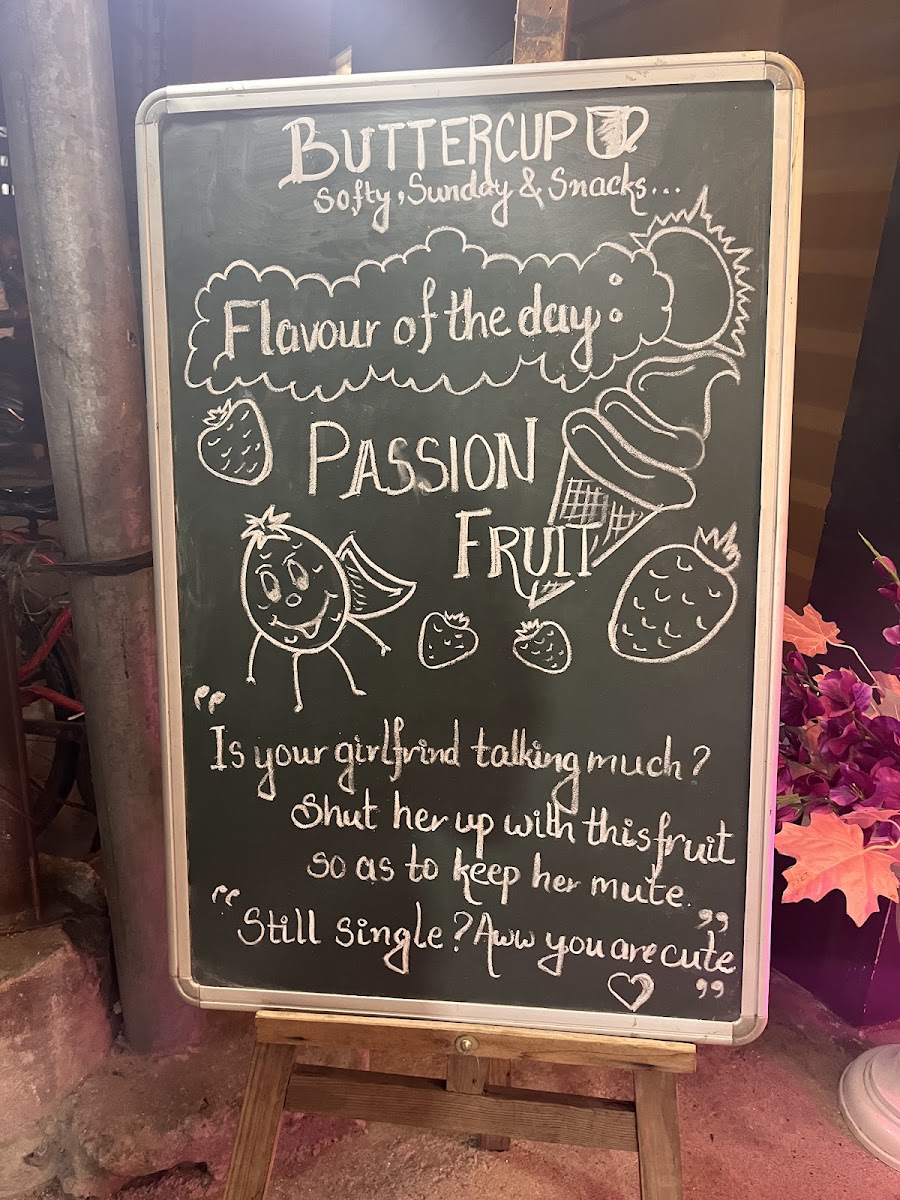 BUTTERCUP
Softy, Sunday & Snacks...
Flavour of the day:
PASSION
FRUIT
"Is your girlfrind talking much?
Shut her up with this fruit
so as to keep her mute."
"Still single? Aww you are cute
"